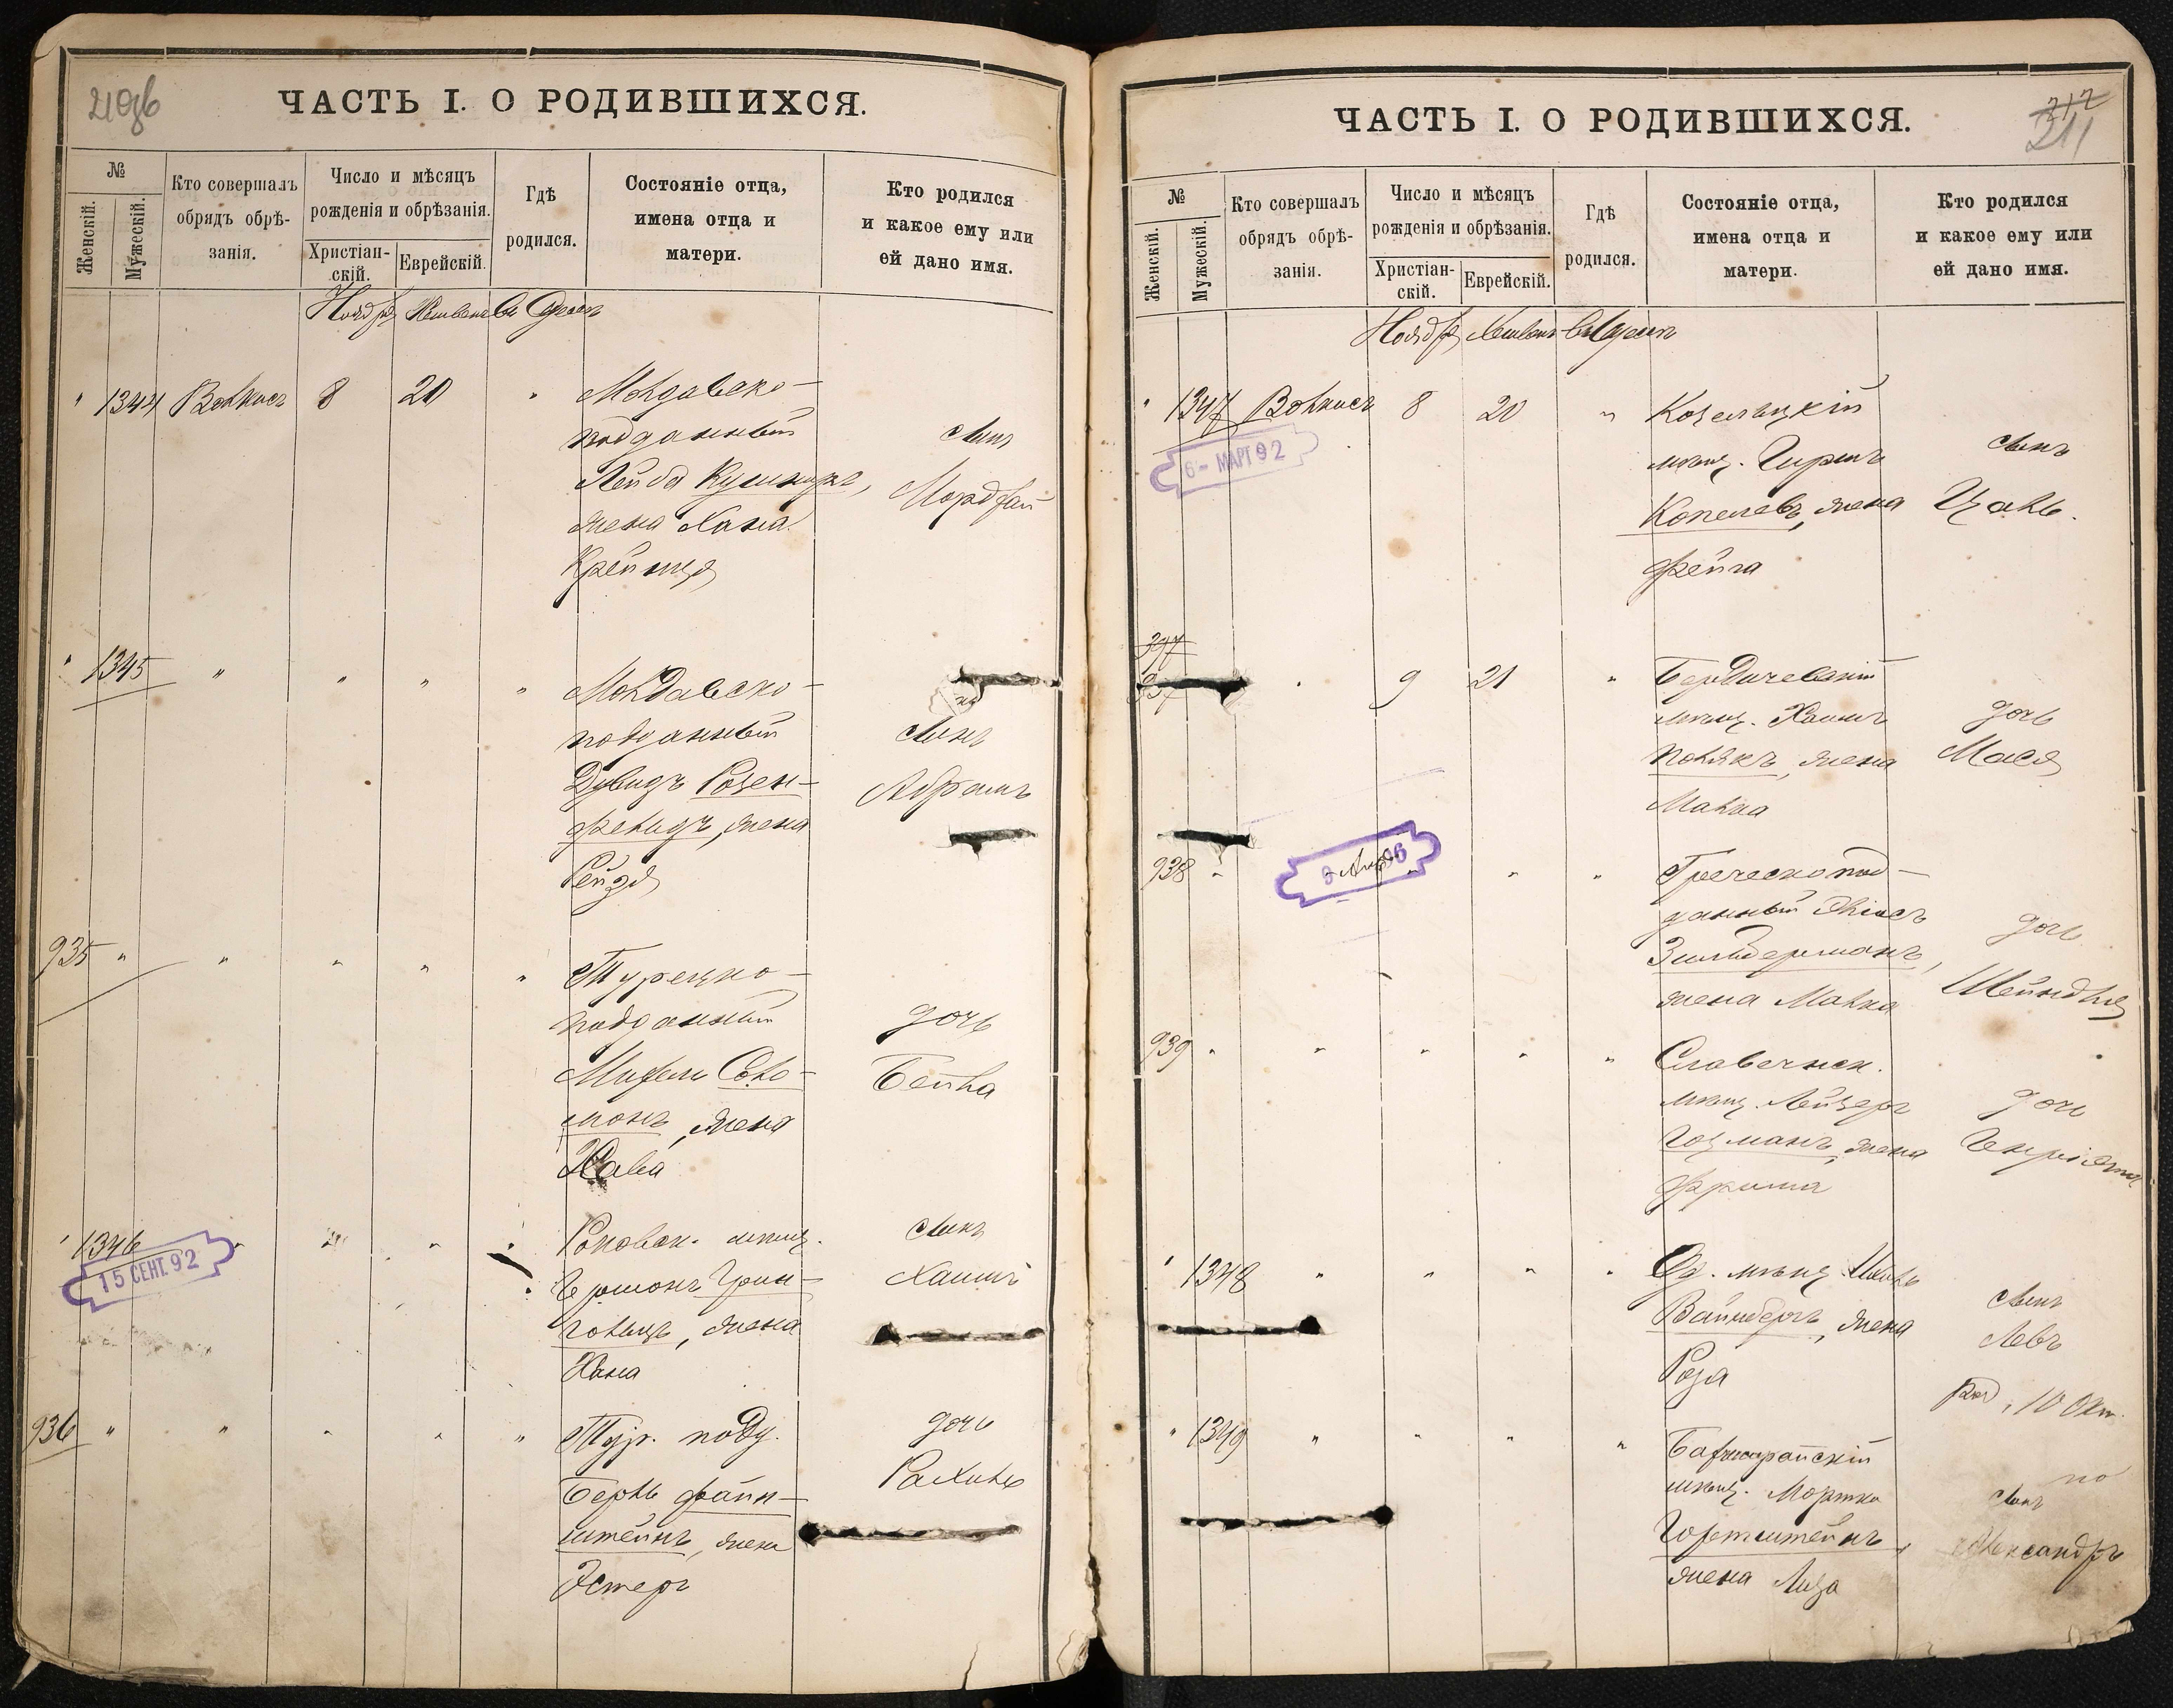 210об
ЧАСТЬ I. О РОДИВШИХСЯ.
№
Женскій.
Мужескій.
Кто совершалъ
обрядъ обрѣ-
занія.
Число и мѣсяцъ
рожденія и обрѣзанія.
Христіан-
скій.
Еврейскій.
Гдѣ
родился.
Состояніе отца,
имена отца и
матери.
Кто родился
и какое ему или
ей дано имя.
Ноябрь Хешвенъ Въ Одессѣ
" 1344 Волкисъ 8 20 " Молдавско-
подданный
Лейба Кушниръ,
жена Хана
Крейнця
сынъ
Мордхай
" 1345 " " " " Молдавско-
подданный
Дувидъ Розен-
фельдъ, жена
Рейзя
сынъ
Абрамъ
935 " " " " " Турецко-
подданный
Михель Соло-
монъ, жена
Хава
дочь
Бейла
" 1346 " " "
15 СЕНТ. 92
мѣщ.
Гершонъ Грин-
гольцъ, жена
Хана
сынъ
Хаимъ
936 " " " " " Тур. подд.
Берль Файн-
штейнъ, жена
Эстеръ
дочь
Рахиль
212
211
ЧАСТЬ I. О РОДИВШИХСЯ.
№
Женскій.
Мужескій.
Кто совершалъ
обрядъ обрѣ-
занія.
Число и мѣсяцъ
рожденія и обрѣзанія.
Христіан-
скій.
Еврейскій.
Гдѣ
родился.
Состояніе отца,
имена отца и
матери.
Кто родился
и какое ему или
ей дано имя.
Ноябрь Хешвенъ Въ Одессѣ
" 1347 Волкисъ 8 20 " Козелецкій
6 - МАРТ 92
мѣщ. Гиршъ
Копелевъ, жена
Фейга
сынъ
Цаль.
937 " 9 21 " Бердичевскій
мѣщ. Хаимъ
Полякъ, жена
Малка
дочь
Мася
938 " " " " Греческопод-
данный
Зильберманъ,
жена Малка
дочь
Шейндля
939 " " " " " Славечнск.
мѣщ. Лейзеръ
Гозманъ, жена
Фрима
дочь
Генріетта
" 1348 " " " " Од. мѣщ.
Вайнбергъ, жена
Роза
сынъ
Левъ
род. 10 Окт.
" 1349 " " " "
мѣщ. Мортко
Горенштейнъ,
жена Лиза
сынъ
Александръ